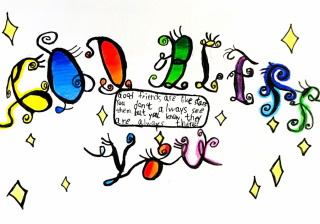 GOD BLESS
Good friends are like stars
You don't always see
them but you know they
are always there
you